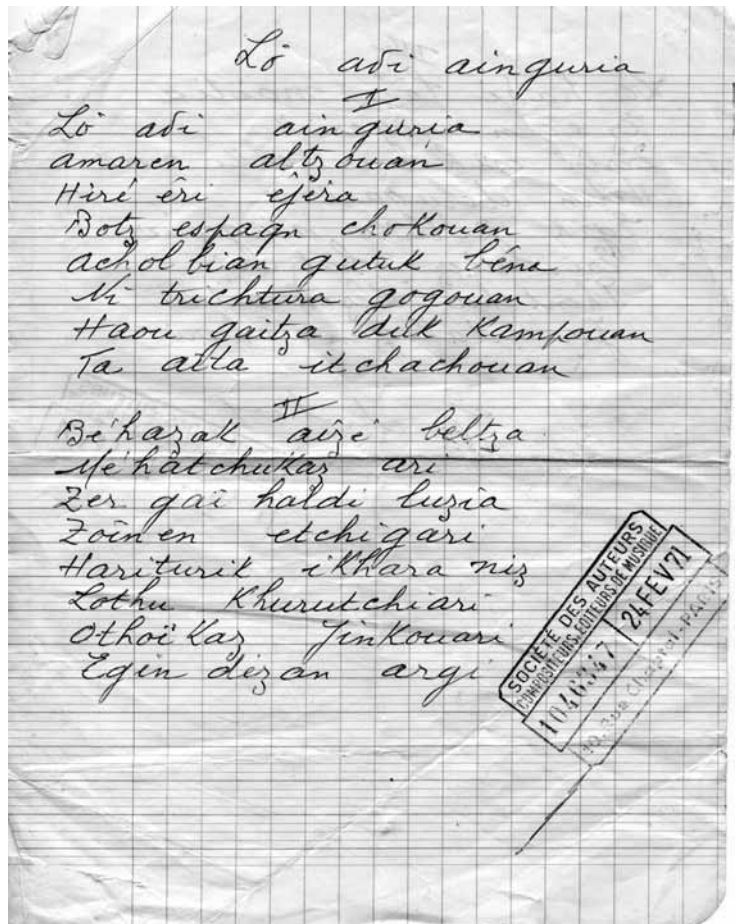 Lo adi ainguria
I
Lo adi ainguria
amaren altzouan
Hiré éri ejéra
Botz espagn chokouan
achol bian gutuk béna
Ni trichtura gogouan
Haou gaitza duk Kampouan
Ta aita itchachouan
II
Béhazak aïzé beltza
Méhatchukaz ari
Zer gaï haldi luzia
Zoïnen etchigari
Hariturik ikhara niz
Lothu Khurutchiari
Othoï Kaz Jinkouari
Egin dézan argi
SOCIÉTÉ DES AUTEURS
COMPOSITEURS, EDITEURS DE MUSIQUE
24 FEV 71
10, Rue Chaptal - PARIS